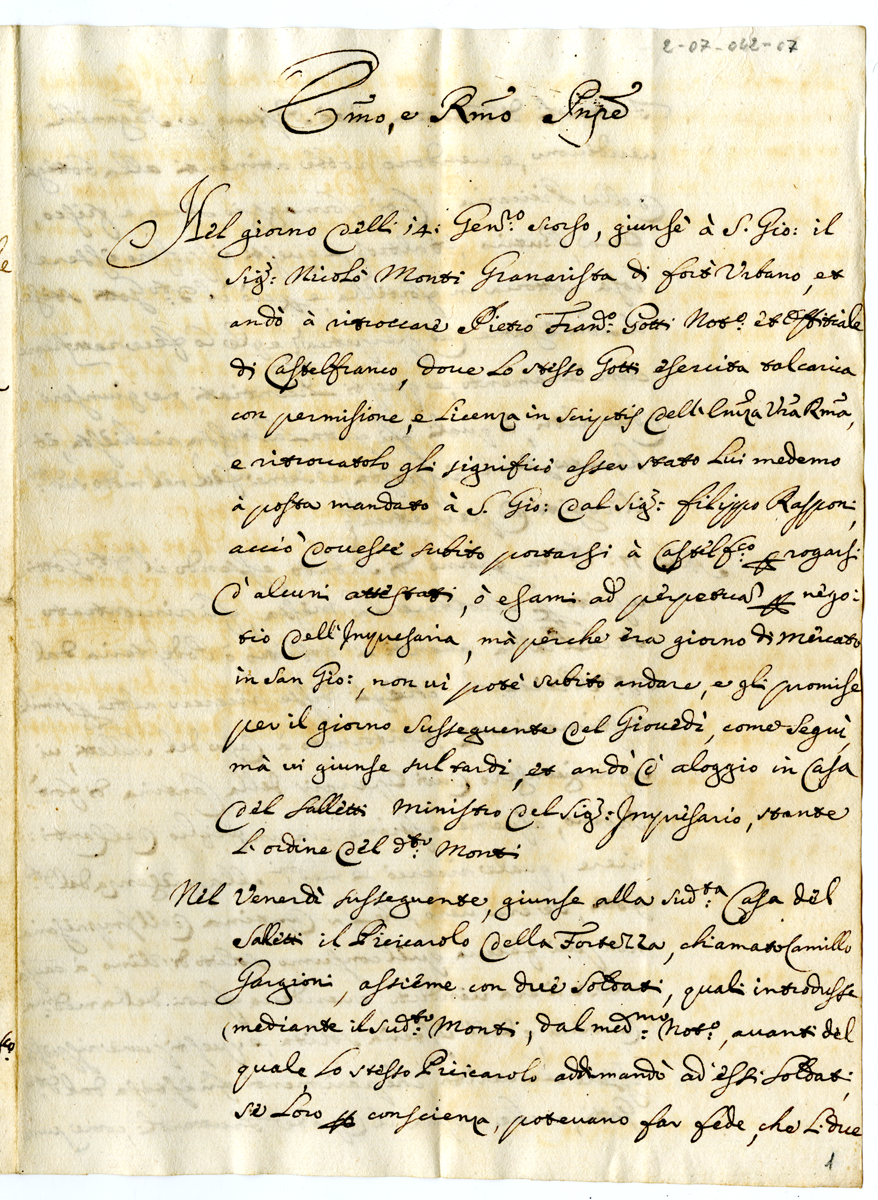 2-07-042-07
Emo, e Rmo Pnpe
Nel giorno delli 14: Genro: scorso, giunse à S. Gio: il
Sigr: Nicolò Monti Granarista di forte Urbano, et
andò à ritrovare Pietro Frano: Gotti Noto: et Offitiale
di Castelfranco, dove lo stesso Gotti esercita tal carica
con permisione, e licenza in scriptis dell'Emza Vra Rma,
e ritrovatolo gli significò esser stato lui medemo
à posta mandato à S. Gio: dal Sigr: filippo Rasponi,
acciò dovesse subito portarsi à Castelfco: p rogarsi
d'alcuni attestati, ò esami ad perpetuam p nego:
tio dell'Inpresaria, mà perche era giorno di mercato
in San Gio:, non vi potè subito andare, e gli promise
per il giorno susseguente del Giovedì, come seguì,
mà vi giunse sul tardi, et andò d'aloggio in Casa
del Salletti Ministro del Sigr: Inpresario, stante
l'ordine del dto: Monti
Nel Venerdì susseguente, giunse alla sudta: Casa del
Salletti il Picicarolo della Fortezza, chiamato Camillo
Gargioni, assieme con due Soldati, quali introdusse
(mediante il sudto: Monti, dal medmo: Noto:, avanti del
quale, lo stesso Picicarolo addimandò ad essi Soldati,
se loro p conscienza, potevano far fede, che li due
1